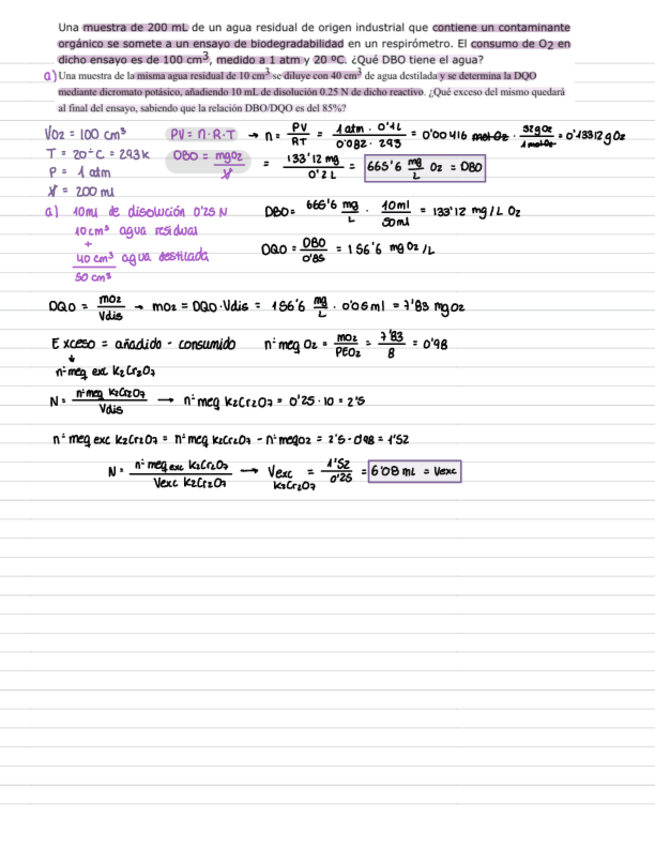 Una muestra de 200 mL de un agua residual de origen industrial que contiene un contaminante
orgánico se somete a un ensayo de biodegradabilidad en un respirómetro. El consumo de O2 en
dicho ensayo es de 100 cm³, medido a 1 atm y 20 ºC. ¿Qué DBO tiene el agua?
a) Una muestra de la misma agua residual de 10 cm³ se diluye con 40 cm³ de agua destilada y se determina la DQO
mediante dicromato potásico, añadiendo 10 mL de disolución 0.25 N de dicho reactivo. ¿Qué exceso del mismo quedará
al final del ensayo, sabiendo que la relación DBO/DQO es del 85%?
VO2 = 100 cm³ PV = n·R·T → n = PV/RT = 1 atm · 0'1L / 0'082 · 293 = 0'00416 mol O2 · 32gO2/1molO2 = 0'13312 g O2
T = 20ºC = 293K DBO = mgO2/V = 133'12 mg / 0'2 L = 665'6 mg/L O2 = DBO
P = 1 atm
V = 200 ml
a) 10ml de disolución 0'25 N DBO = 666'6 mg/L · 10ml/50ml = 133'12 mg/L O2
10cm³ agua residual
+
40 cm³ agua destilada DQO = DBO/0'85 = 156'6 mg O2/L
50 cm³
DQO = mO2/Vdis → mO2 = DQO·Vdis = 156'6 mg/L · 0'05ml = 7'83 mgO2
Exceso = añadido - consumido nº meq O2 = mO2/PEO2 = 7'83/8 = 0'98
↓
nº meq exc K2Cr2O7
N = nº meq K2Cr2O7/Vdis → nº meq K2Cr2O7 = 0'25 · 10 = 2'5
nº meq exc K2Cr2O7 = nº meq K2Cr2O7 - nº meqO2 = 2'5 - 0'98 = 1'52
N = nº meq exc K2Cr2O7 / Vexc K2Cr2O7 → Vexc K2Cr2O7 = 1'52/0'25 = 6'08 mL = Vexc